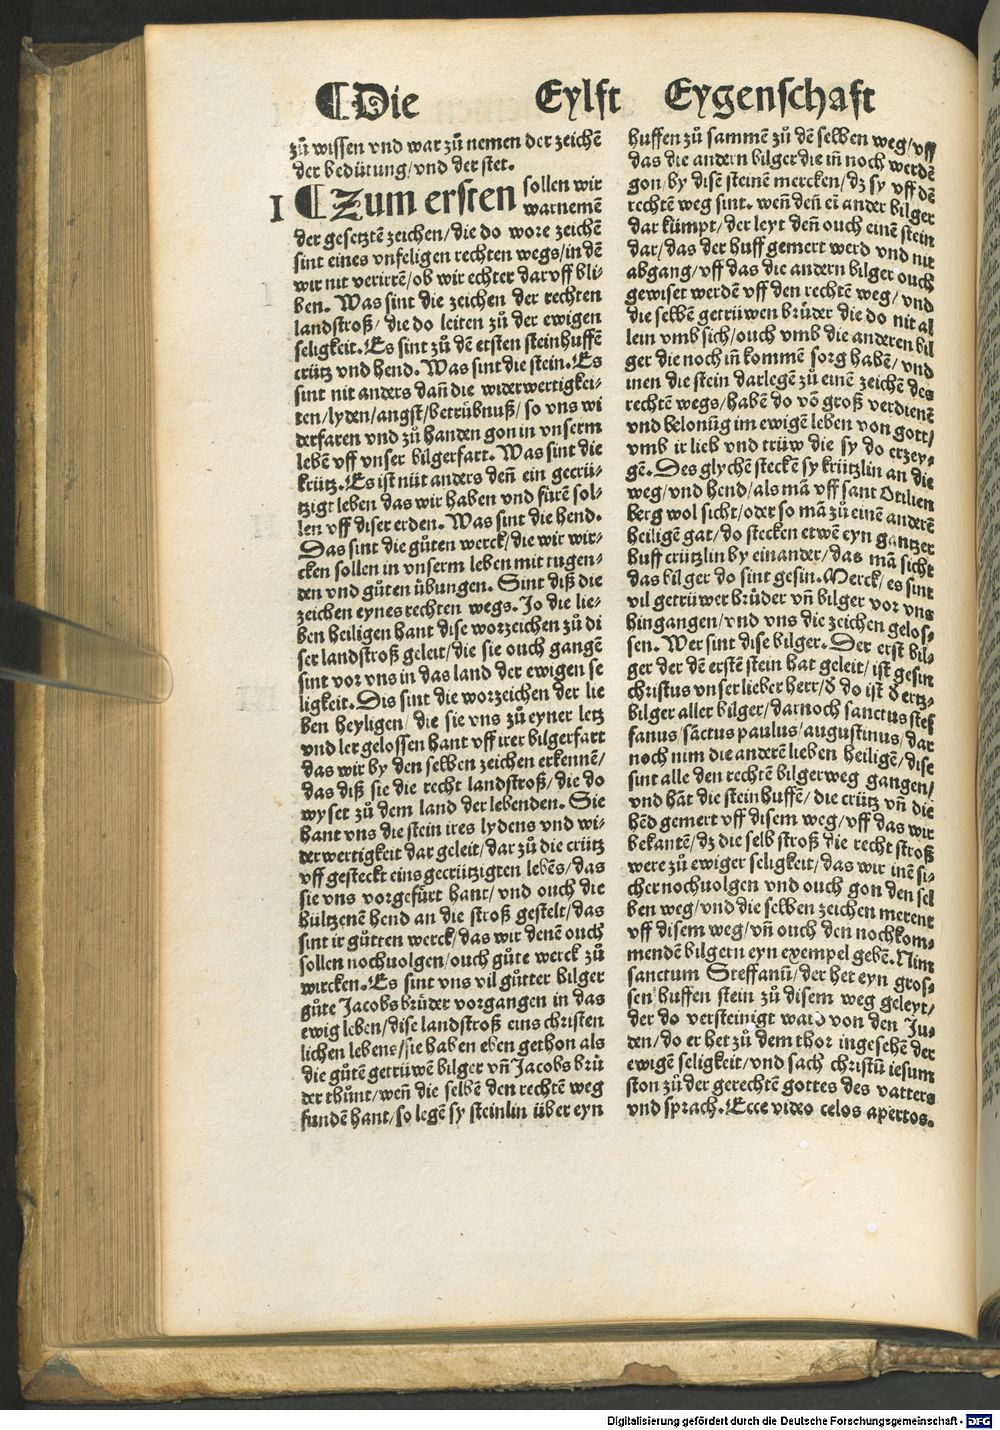 ¶Die Eylft Eygenschaft
zů wissen vnd war zů nemen der zeichē
der bedütung/vnd der stet.
I ¶Zum ersten sollen wir
warnemē
der gesetztē zeichen/die do wore zeichē
sint eines vnfeligen rechten wegs/in dē
wir nit verirrē/ob wir echter dar vff bli-
ben. Was sint die zeichen der rechten
landstroß/ die do leiten zů der ewigen
seligkeit. Es sint zů dē ersten steinhuffē
crütz vnd hend. Was sint die stein. Es
sint nit anders dan̄ die widerwertigkei-
ten/lyden/angst/betrübnuß/ so vns wi
derfaren vnd zů handen gon in vnserm
lebē vff vnser bilgerfart. Was sint die
krütz. Es ist nüt anders den̄ ein gecrü-
tzigt leben das wir haben vnd fürē sol-
len vff diser erden. Was sint die hend.
Das sint die gůten werck/die wir wir-
cken sollen in vnserm leben mit tugen-
den vnd gůten übungen. Sint diß die
zeichen eynes rechten wegs. Jo die lie-
ben heiligen hant dise worzeichen zů di
ser landstroß geleit/die sie ouch gangē
sint vor vns in das land der ewigen se
ligkeit. Dis sint die worzeichen der lie
ben heyligen/ die sie vns zů eyner letz
vnd ler gelossen hant vff irer bilgerfart
das wir by den selben zeichen erkennē/
das diß sie die recht landstroß/die do
wyset zů dem land der lebenden. Sie
hant vns die stein ires lydens vnd wi-
derwertigkeit dar geleit/dar zů die crütz
vff gesteckt eins gecrützigten lebēs/das
sie vns vorgefürt hant/ vnd ouch die
hültzenē hend an die stroß gestelt/das
sint ir gůtten werck/das wir denē ouch
sollen nochuolgen/ouch gůte werck zů
wircken. Es sint vns vil gůtter bilger
gůte Jacobs brüder vorgangen in das
ewig leben/dise landstroß eins christen
lichen lebens/sie haben eben gethon als
die gůtē getrüwē bilger vn̄ Jacobs brü
der thůnt/wen̄ die selbē den rechtē weg
fundē hant/so legē sy steinlin über eyn
huffen zů sammē zů dē selben weg/vff
das die andern bilger die in̄ noch werdē
gon/by disē steinē mercken/dz sy vff dē
rechtē weg sint. wen̄ den̄ ei̅ ander bilger
dar kümpt/der leyt den̄ ouch einē stein
dar/das der huff gemert werd vnd nit
abgang/vff das die andern bilger ouch
gewiset werdē vff den rechtē weg/ vnd
die selbē getrüwen brüder die do nit al
lein vmb sich/ouch vmb die anderen bil
ger die noch in̄ kommē sorg habē/ vnd
inen die stein darlegē zů einē zeichē des
rechtē wegs/habē do vō groß verdienē
vnd belonūg im ewigē leben von gott/
vmb ir lieb vnd trüw die sy do erzey-
gē. Des glychē steckē sy krützlin an die
weg/vnd hend/als mā vff sant Otilien
berg wol sicht/oder so mā zů einē anderē
heiligē gat/do stecken etwē eyn gantzer
huff crützlin by einander/das mā sicht
das bilger do sint gesin. Merck/es sint
vil getrüwer brüder vn̄ bilger vor vns
hingangen/vnd vns die zeichen gelos-
sen. Wer sint dise bilger. Der erst bil-
ger der dē erstē stein hat geleit/ist gesin
christus vnser lieber herr/d̄ do ist d̄ ertz-
bilger aller bilger/darnoch sanctus stef
fanus/sāctus paulus/augustinus/dar
noch nim die anderē lieben heiligē/dise
sint alle den rechtē bilgerweg gangen/
vnd hāt die steinhuffē/ die crütz vn̄ die
hēd gemert vff disem weg/vff das wir
bekantē/dz die selb stroß die recht stroß
were zů ewiger seligkeit/das wir inē si-
cher nochuolgen vnd ouch gon den sel
ben weg/vnd die selben zeichen merent
vff disem weg/vn̄ ouch den nochkom-
mendē bilgern eyn exempel gebē. Nim
sanctum Steffanū/der het eyn gros-
sen huffen stein zů disem weg geleyt/
der do versteinigt ward von den Ju-
den/do er het zů dem thor ingesehē der
ewigē seligkeit/vnd sach christū iesum
ston zů der gerechtē gottes des vatters
vnd sprach. Ecce video celos apertos.
Digitalisierung gefördert durch die Deutsche Forschungsgemeinschaft - DFG